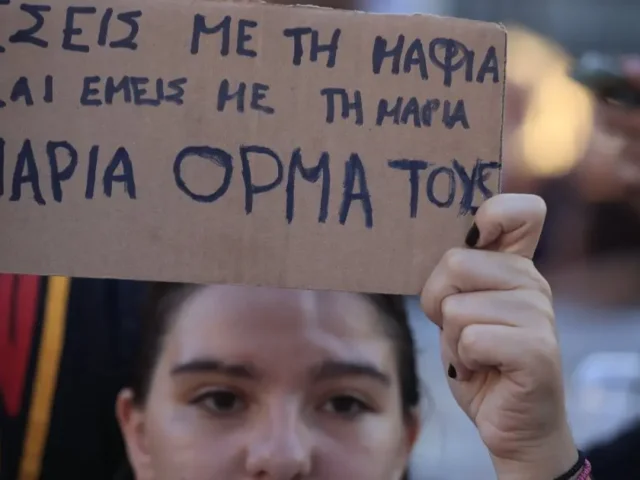 ΕΣΕΙΣ ΜΕ ΤΗ ΜΑΦΙΑ
ΚΑΙ ΕΜΕΙΣ ΜΕ ΤΗ ΜΑΡΙΑ
ΜΑΡΙΑ ΟΡΜΑ ΤΟΥΣ